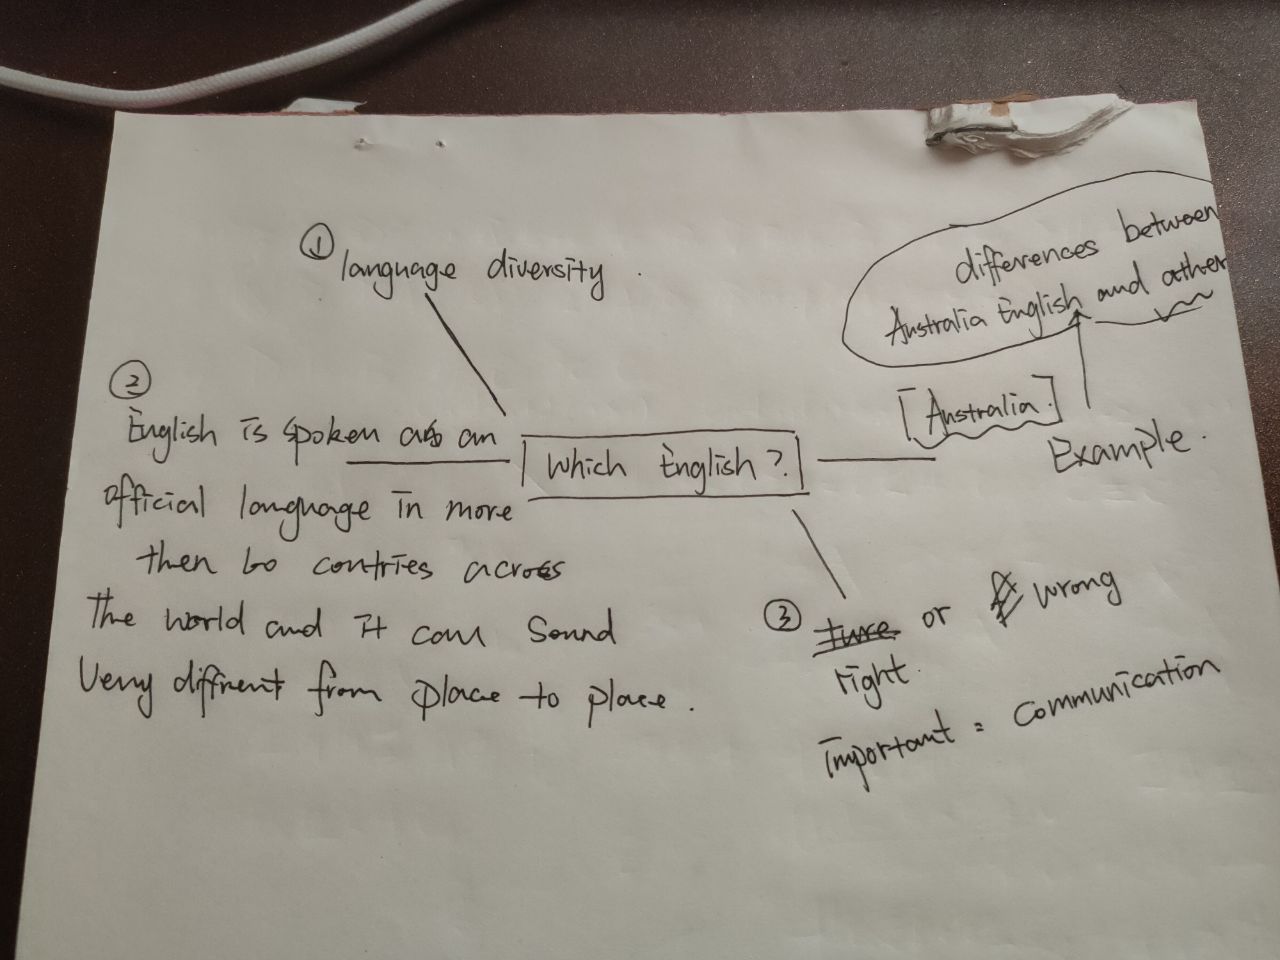 ① language diversity.
differences between
Australia English and other
②
English is spoken as an
official language in more
then 60 contries across
the world and it can sound
Very diffrent from place to place.
Which English?
[Australia.]
Example.
③ or wrong
right.
important = communication